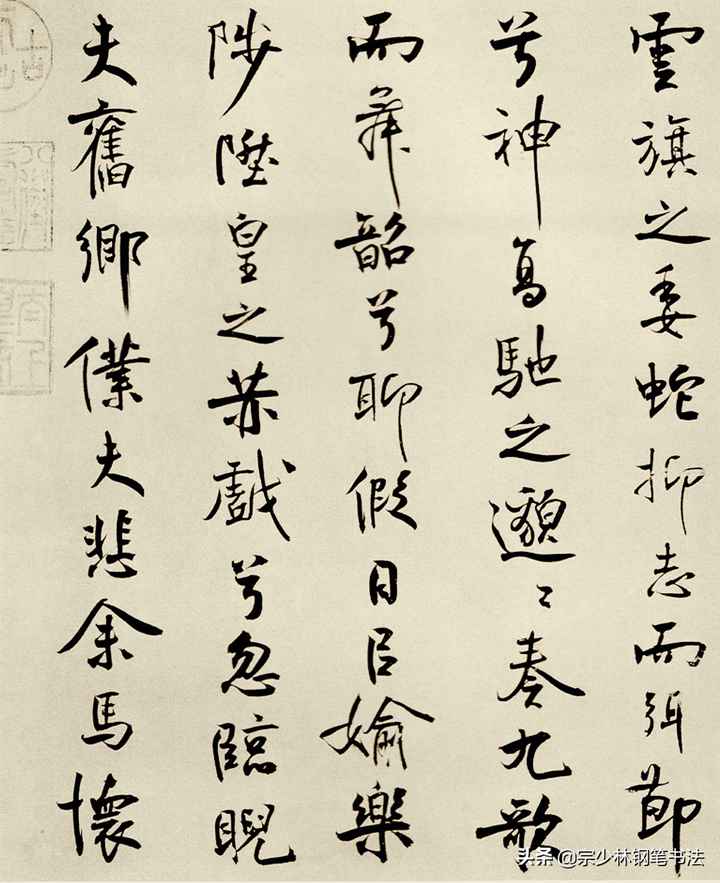 雲旗之委蛇抑志而弭節
兮神高馳之邈〻奏九歌
而舞韶兮聊假日㠯婾樂
陟陞皇之赫戲兮忽臨睨
夫舊鄉僕夫悲余馬懷
头条 @宗少林钢笔书法